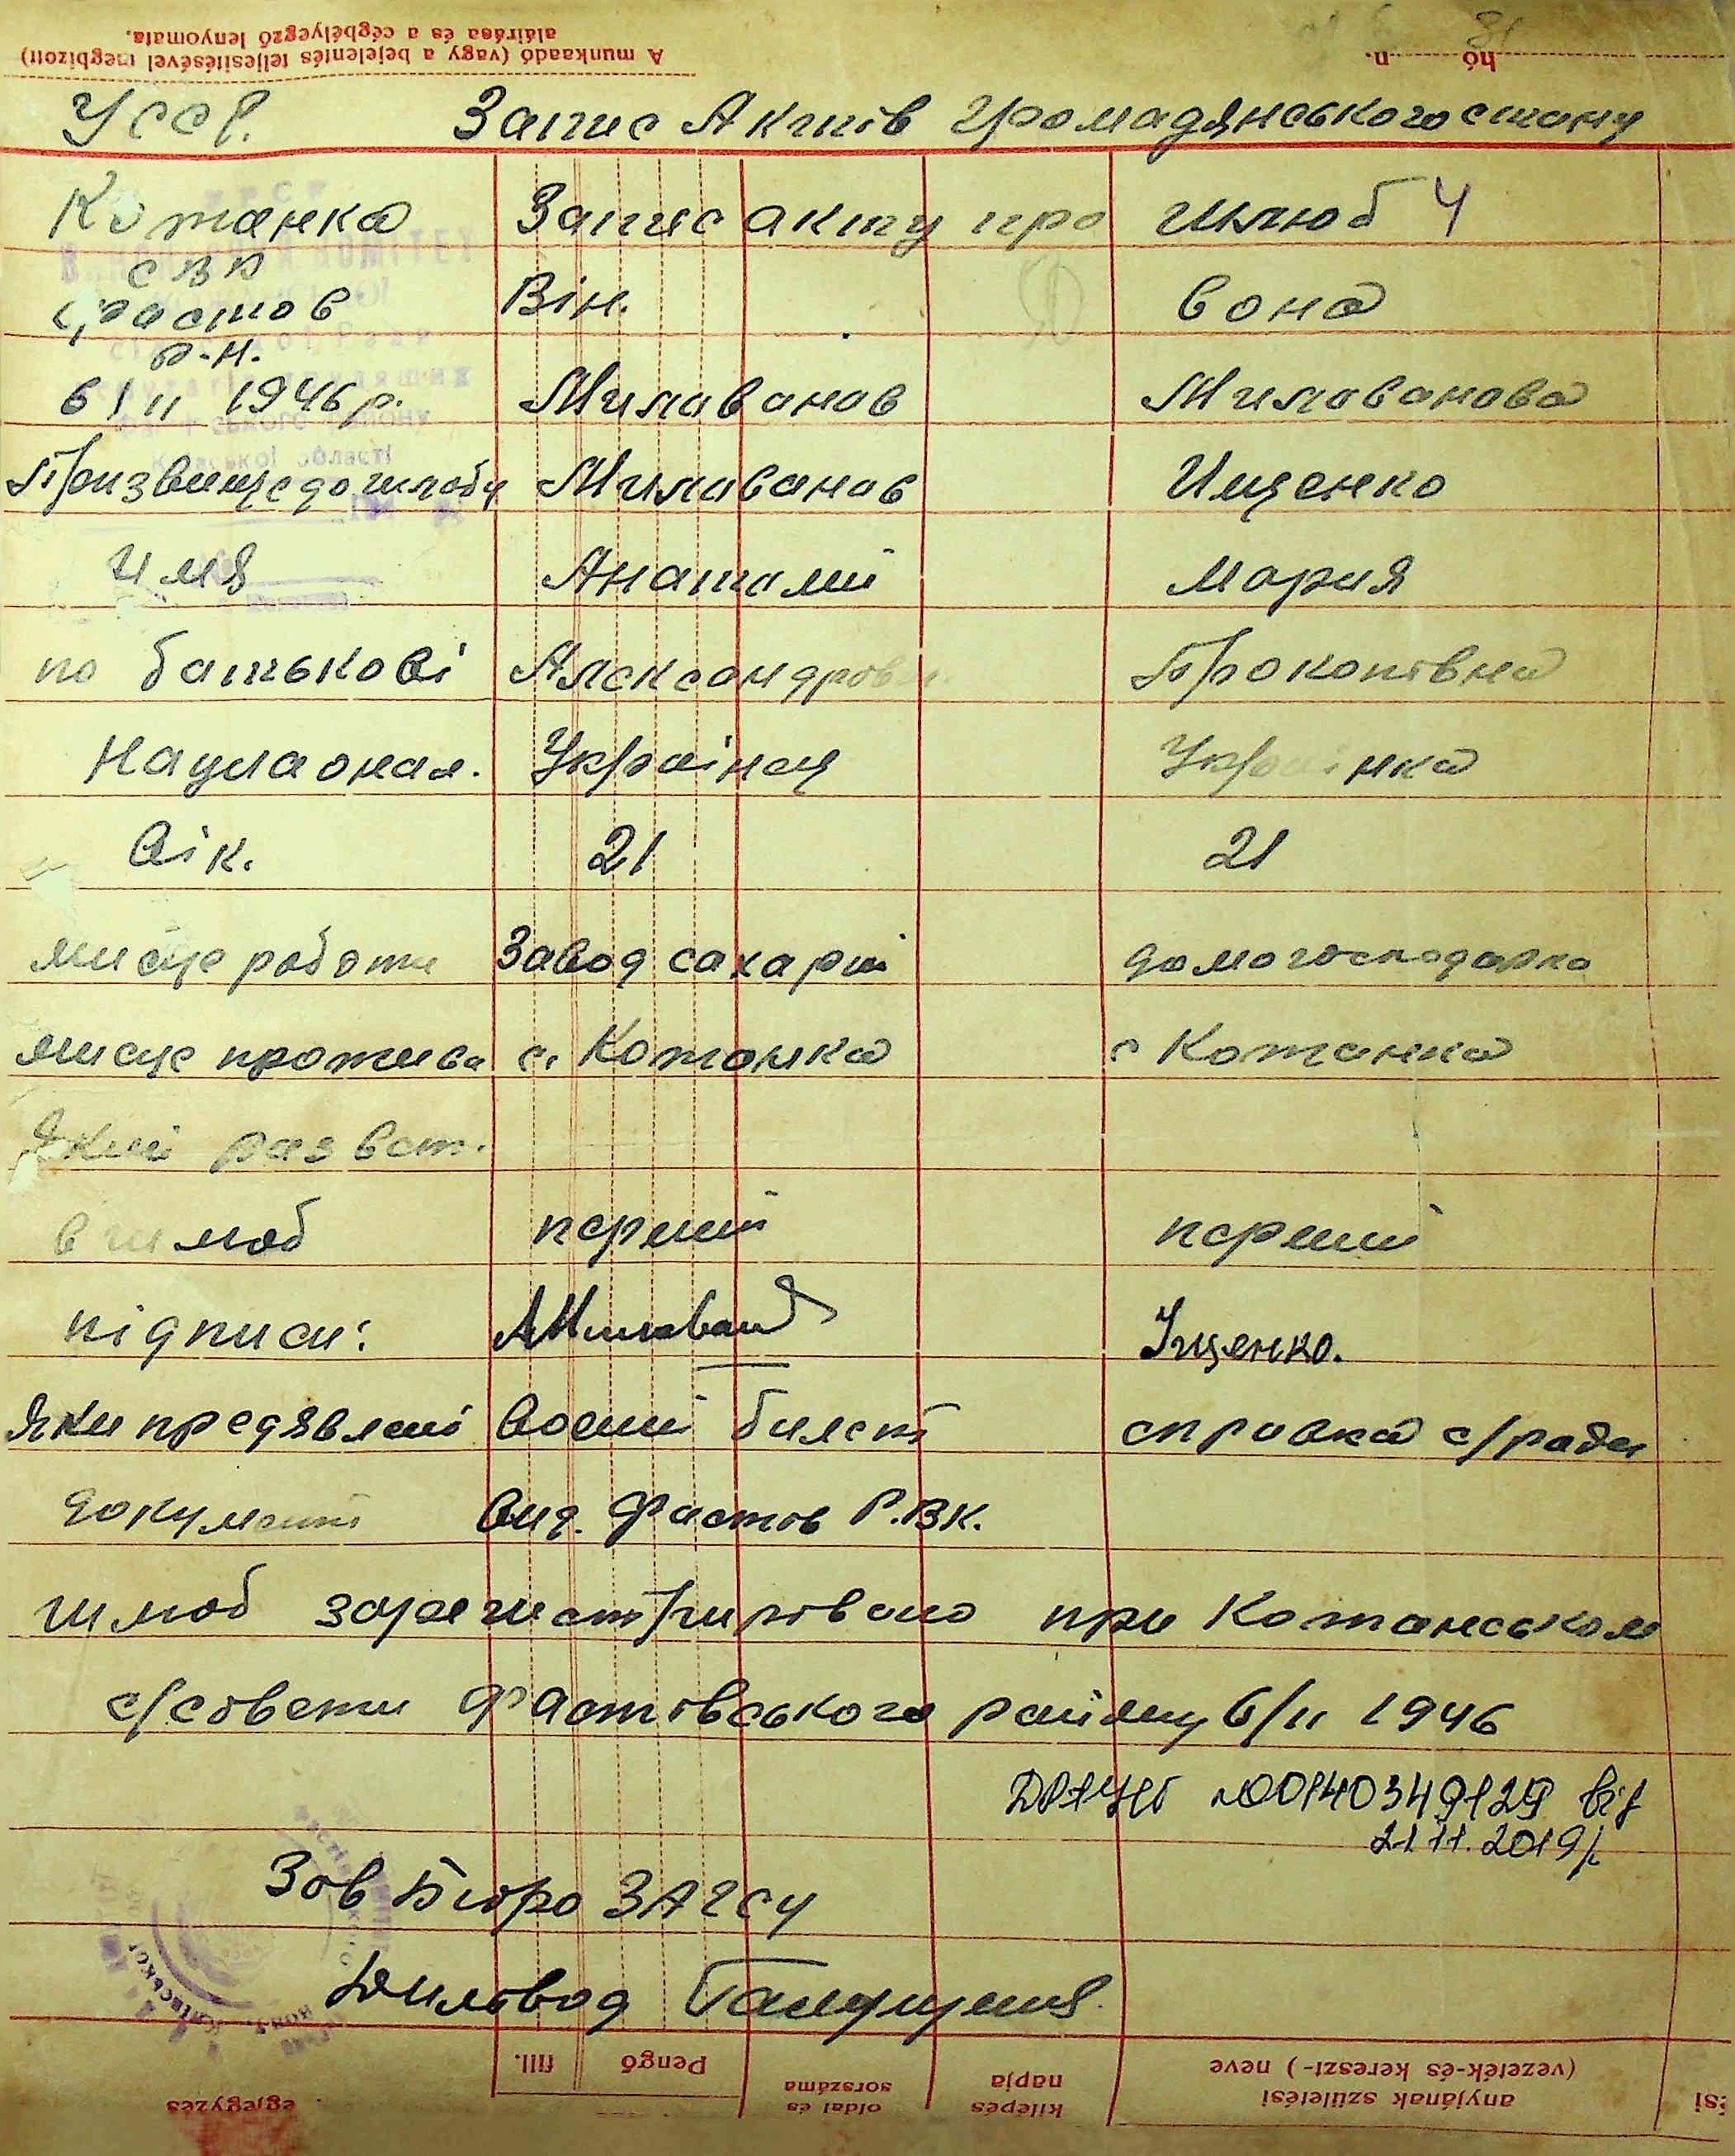 A munkaadó (vagy a bejelentés teljesítésével megbízott)
aláírása és a cégbélyegző lenyomata.
hó n.
УССР. Запис Актів Громадянського стану
Котанка Запис акту про шлюб 4
Фастов Він. Вона
р-н.
6/II 1946 р. Милаванов Милаванова
Призвище до шлюбу Милаванав Ищенко
Имя Анаталій Мария
по батькові Александрович Прокопівна
Націаонал. Українец Українка
Вік. 21 21
мисце роботи Завод сахарій домогосподарка
мисце прожива с. Котанка с Котанка
Який раз вст.
в шлюб перший перший
підписи: Іщенко.
Яки предявлені Военій билет справка с/ради
документи Вид. Фастов Р.В.К.
шлюб зарегистрировано при Котанськом
с/совети Фастовського району 6/II 1946
ДРАЦСГ №00140349129 від
21.11.2019р.
Зав Бюро ЗАГСу
Діловод
egjegyzés
fill. Pengő
oldal és
sorszáma
kilépés
napja
anyjának születési
(vezeték-és kereszt-) neve